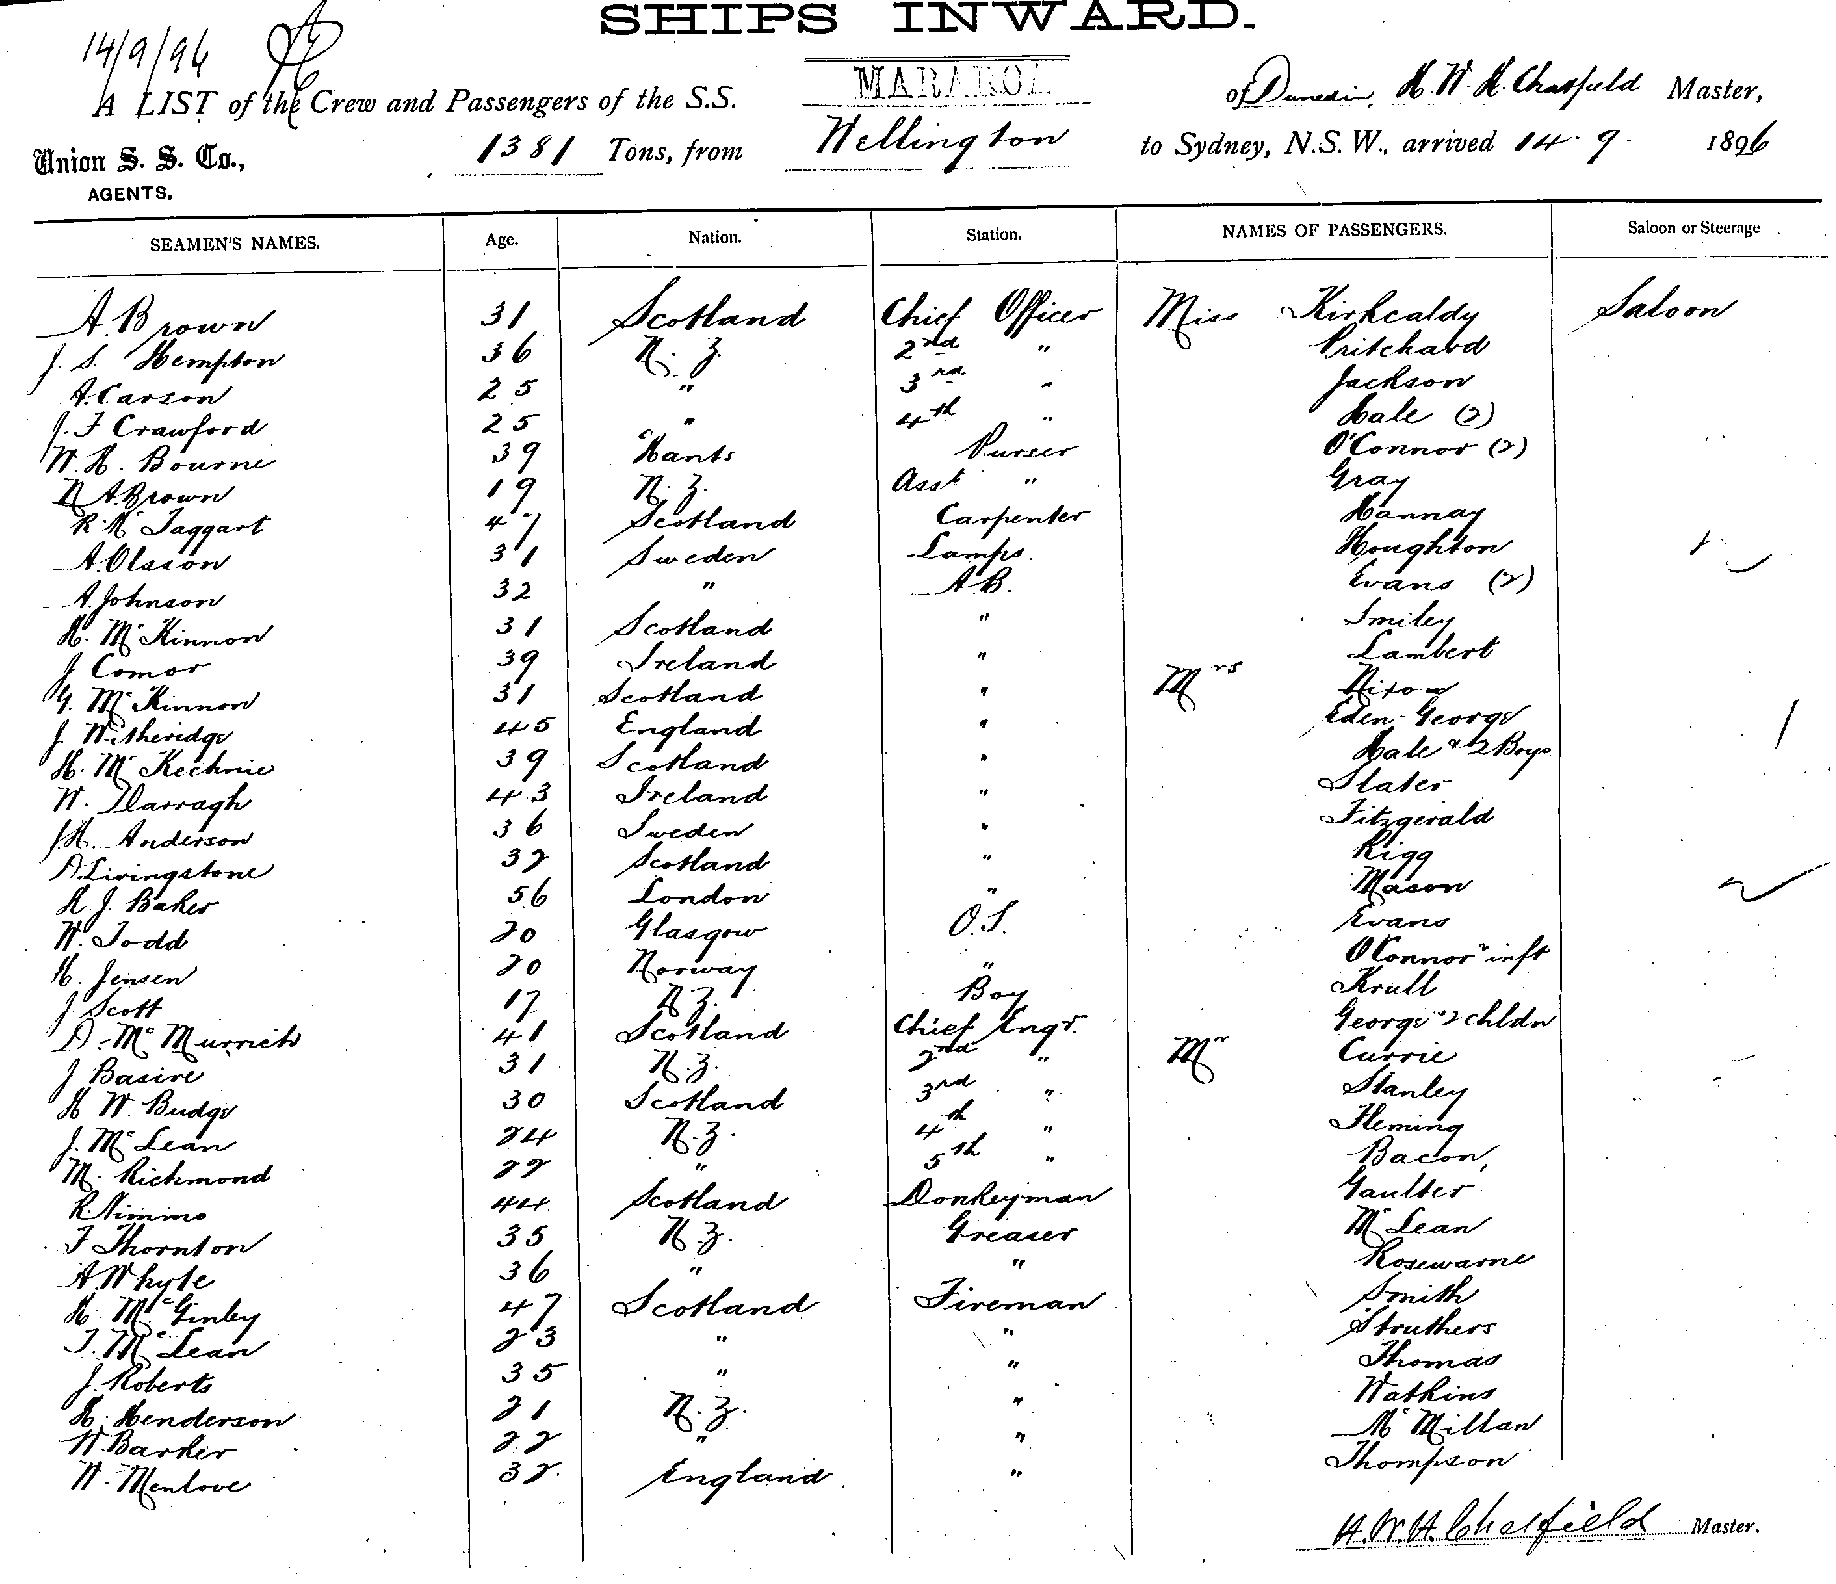 SHIPS INWARD.
14/9/96
A LIST of the Crew and Passengers of the S.S. MARAROA of Dunedin, H. W. H. Chatfield Master,
Union S. S. Co., 1381 Tons, from Wellington to Sydney, N.S.W., arrived 14. 9. 1896
AGENTS.
SEAMEN'S NAMES. Age. Nation. Station. NAMES OF PASSENGERS. Saloon or Steerage
A. Brown 31 Scotland Chief Officer Miss Kirkcaldy Saloon
J. S. Hempton 36 N. Z. 2nd " Pritchard
A. Carson 25 " 3rd " Jackson
J. F Crawford 25 " 4th " Hale (2)
W. H. Bourne 39 Hants Purser O'Connor (2)
N A. Brown 19 N. Z. Asst " Gray
R. Mc Taggart 47 Scotland Carpenter Hannay
A. Olsson 31 Sweden Lamps. Houghton
A. Johnson 32 " A B. Evans (2)
H. Mc Kinnon 31 Scotland " Smiley
J Comor 39 Ireland " Lambert
G. Mc Kinnon 31 Scotland " Mrs Nixon
J. Witheridge 45 England " Eden George
H. Mc Kechnie 39 Scotland " Hale & 2 Boys
W. Darragh 43 Ireland " Slater
J. H. Anderson 36 Sweden " Fitzgerald
D. Livingstone 32 Scotland " Rigg
R J. Baker 56 London " Mason
W. Todd 20 Glasgow O.S. Evans
H. Jensen 20 Norway " O'Connor & inft
J Scott 17 N Z. Boy Krull
D. Mc Murrich 41 Scotland Chief Engr. George & 2 chldn
J Basire 31 N. Z. 2nd " Mr Currie
H W. Budge 30 Scotland 3rd " Stanley
J. Mc Lean 24 N. Z. 4th " Fleming
M. Richmond 22 " 5th " Bacon,
R. Nimmo 44 Scotland Donkeyman Gaulter
F Thornton 35 N. Z. Greaser Mc Lean
A. Whyte 36 " " Rosewarne
H. Mc Ginley 47 Scotland Fireman Smith
T. Mc Lean 23 " " Struthers
J. Roberts 35 " " Thomas
H. Henderson 21 N. Z. " Watkins
W. Barker 22 " " Mc Millan
W. Menlove 32 England " Thompson
H. W. H. Chatfield Master.